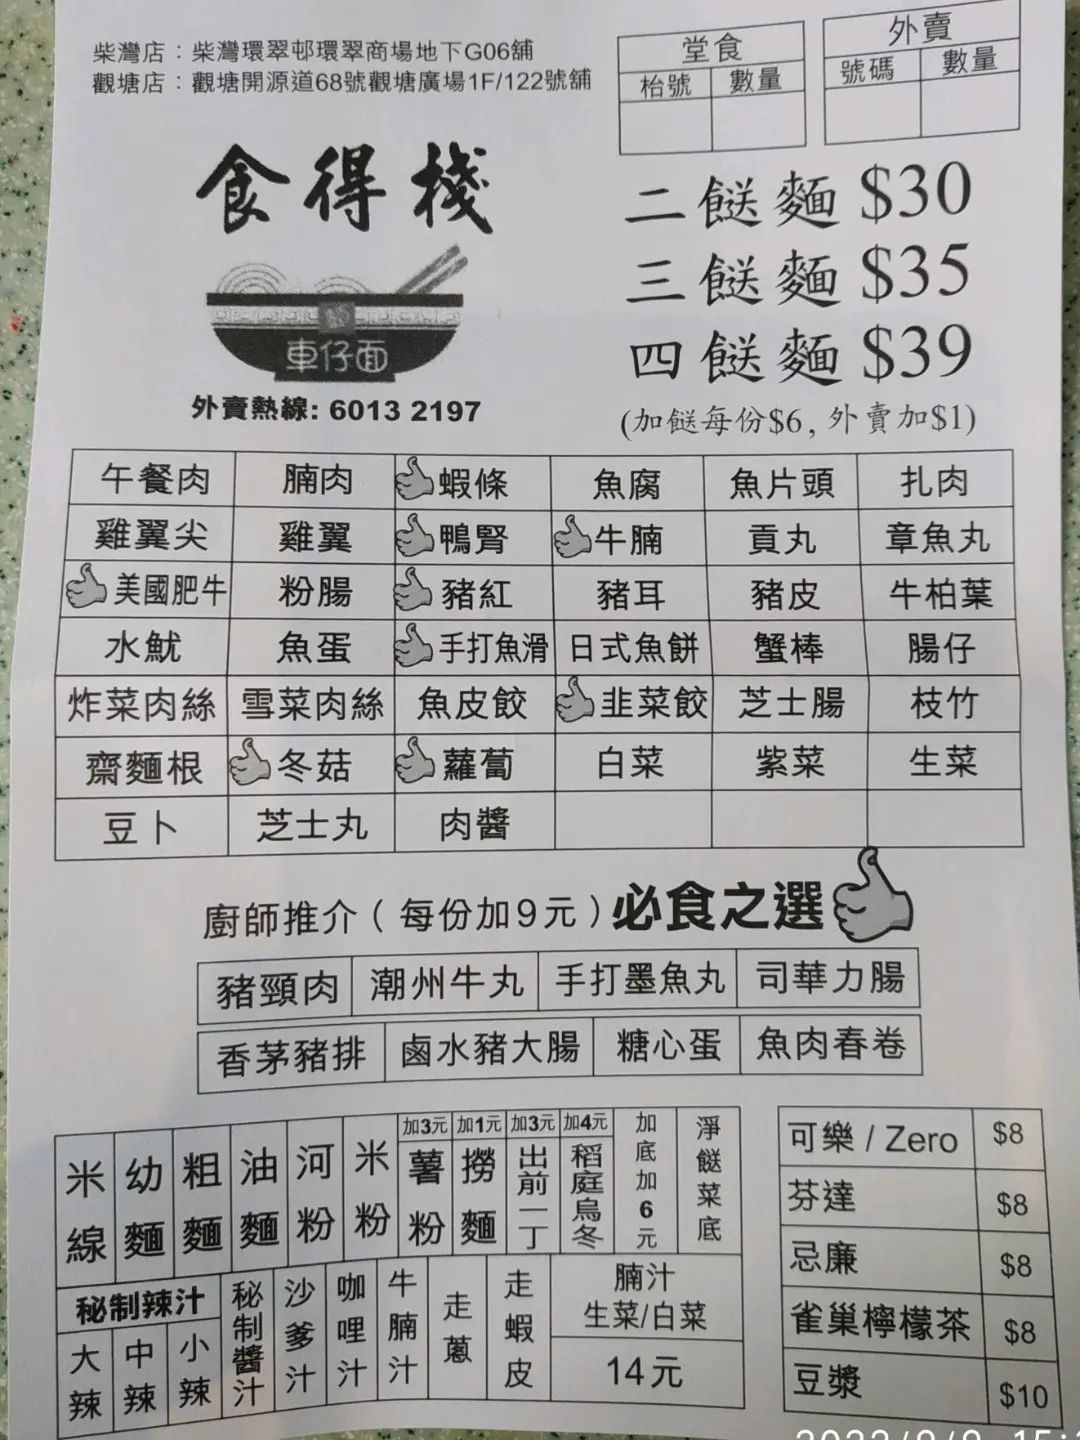 柴灣店：柴灣環翠邨環翠商場地下G06舖
觀塘店：觀塘開源道68號觀塘廣場1F/122號舖
堂食
枱號 數量
外賣
號碼 數量
食得棧
車仔面
外賣熱線: 6013 2197
二餸麵 $30
三餸麵 $35
四餸麵 $39
(加餸每份$6, 外賣加$1)
午餐肉 腩肉 蝦條 魚腐 魚片頭 扎肉
雞翼尖 雞翼 鴨腎 牛腩 貢丸 章魚丸
美國肥牛 粉腸 豬紅 豬耳 豬皮 牛柏葉
水魷 魚蛋 手打魚滑 日式魚餅 蟹棒 腸仔
炸菜肉絲 雪菜肉絲 魚皮餃 韭菜餃 芝士腸 枝竹
齋麵根 冬菇 蘿蔔 白菜 紫菜 生菜
豆卜 芝士丸 肉醬
廚師推介（每份加9元）必食之選
豬頸肉 潮州牛丸 手打墨魚丸 司華力腸
香茅豬排 鹵水豬大腸 糖心蛋 魚肉春卷
米線
幼麵
粗麵
油麵
河粉
米粉
加3元
薯粉
加1元
撈麵
加3元
出前一丁
加4元
稻庭烏冬
加底加6元
淨餸菜底
秘制辣汁
大辣
中辣
小辣
秘制醬汁
沙爹汁
咖哩汁
牛腩汁
走蔥
走蝦皮
腩汁
生菜/白菜
14元
可樂 / Zero $8
芬達 $8
忌廉 $8
雀巢檸檬茶 $8
豆漿 $10